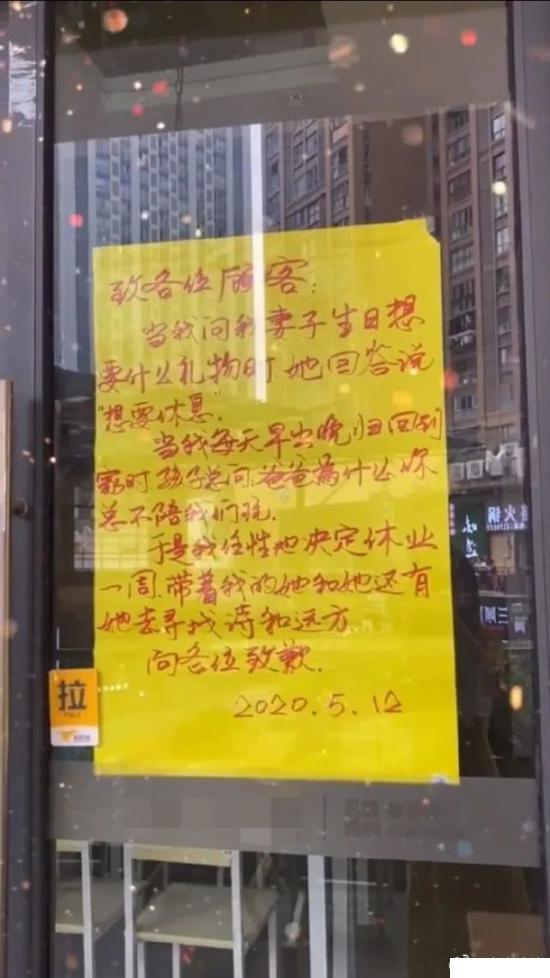 致各位顾客:
当我问我妻子生日想
要什么礼物时,她回答说
"想要休息".
当我每天早出晚归回到
家时孩子总问,爸爸为什么你
总不陪我们玩.
于是我任性地决定休业
一周.带着我的她和她还有
她去寻找诗和远方.
向各位致歉.
2020.5.12
拉
火锅